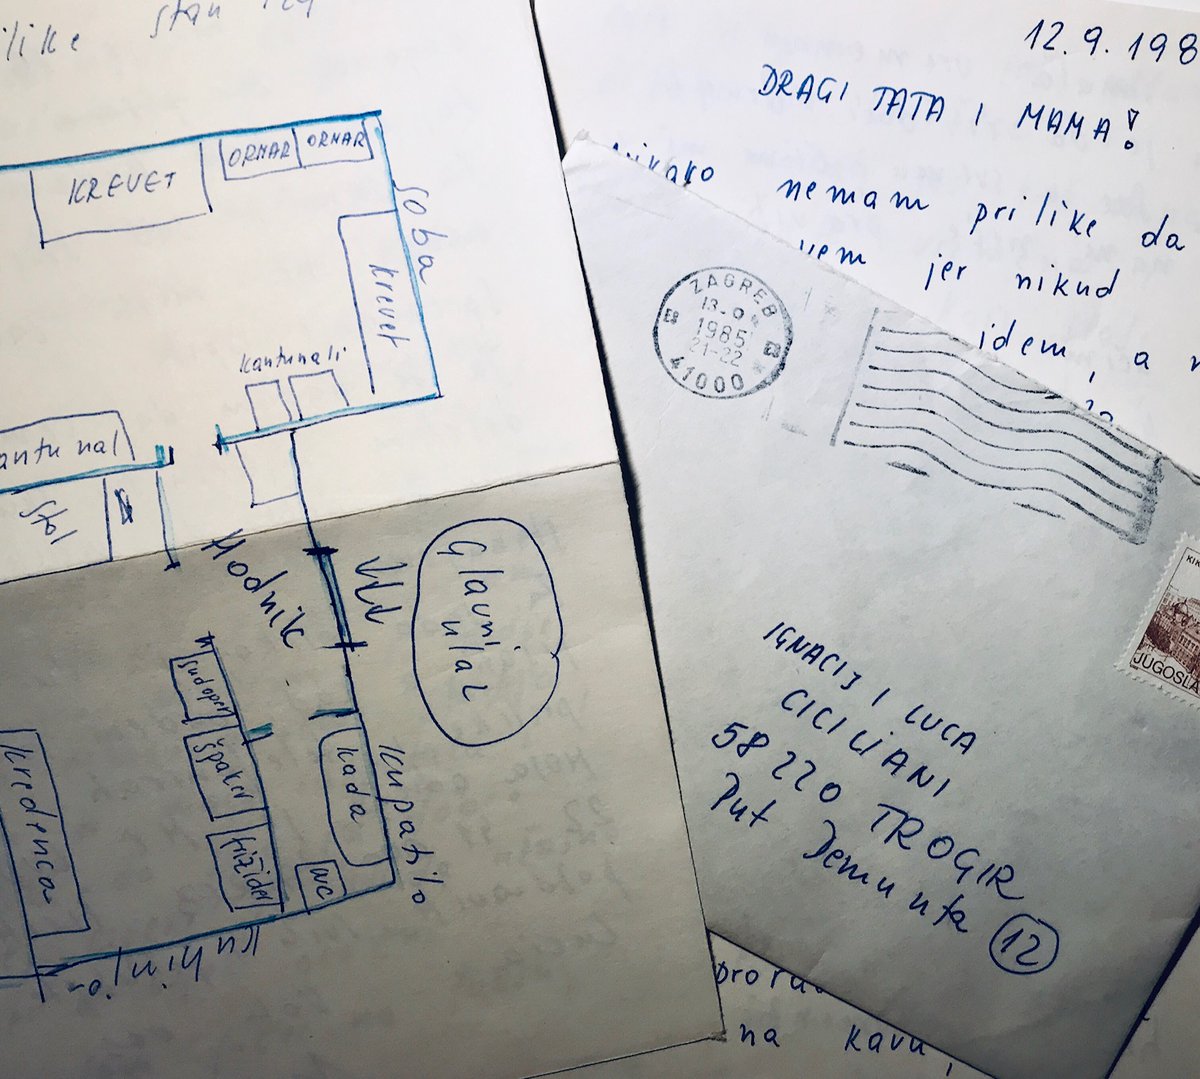 stan
KREVET
ORMAR
ORMAR
Soba
krevet
kantunali
stol
Hodnik
Glavni
ulaz
sudoper
špaker
frižider
kada
kupatilo
WC
kredenca
kuhinja
12.9.198
DRAGI TATA I MAMA!
nikako nemam prilike da
jer nikud
idem, a
ZAGREB
1985
21-22
41000
JUGOSLA
IGNACIJ I LUCA
CICILIANI
58 220 TROGIR
Put Demunta 12
na kavu,